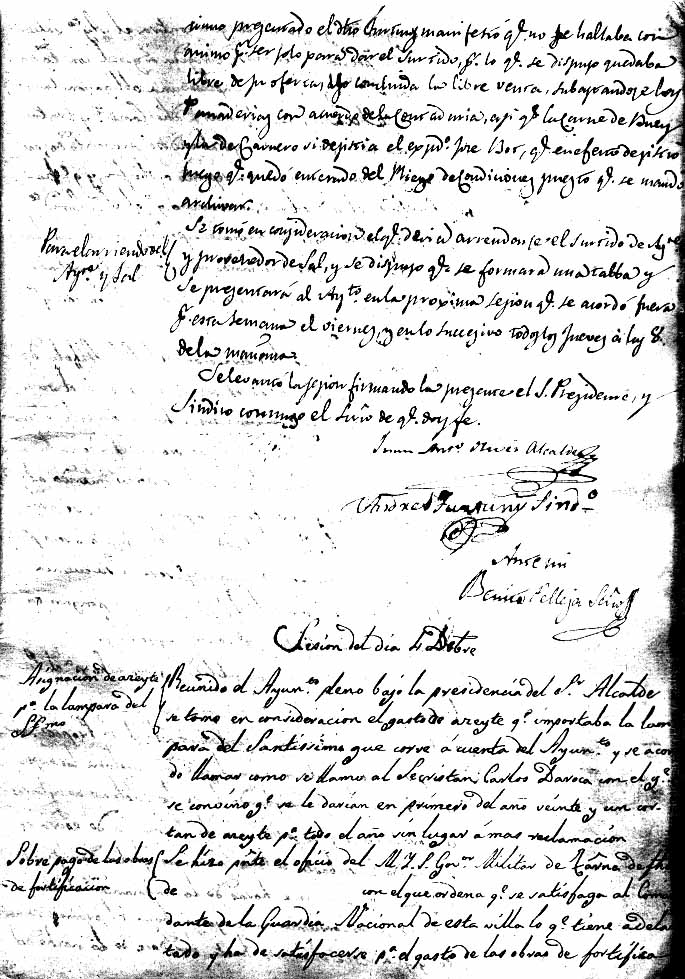 presentado el dho manifestó qe. no se hallaba con
animo pr. ser solo para dar el Surtido, pr. lo qe. se dispuso quedaba
libre de su ofertas, concluida la libre venta, subastandose las
Panaderias con acuerdo de la Contaduria, asi qe. la Carne de Buey
y la de Carnero si desistia el expdo. Jose Bos, qe. en efecto desistio
luego qe. quedó enterado del Pliego de Condiciones puesto qe. se mandó
archivar.
Se tomó en consideracion el qe. devia arrendarse el Surtido de Agte
y proveedor de Sal, y se dispuso qe. se formara una tabba y
Se presentará al Ayto. en la proxima sesion qe. se acordó fuera
pr. esta Semana el viernes, y en lo succesivo todos los Jueves á las 8.
de la mañana.
Para el arriendo del
Agte. y Sal
Se levantó la sesion firmando la presente el S. Presidente, y
Sindico conmigo el Srio de qe. doy fe.
Juan Anto. Alcalde
Andres Sindo.
Ante mi
Benito Pelleja Seño
Sesion del dia 4 Dbre
Asignacion de azeyte
pa. la lampara del
SSmo
Reunido el Ayunto. pleno bajo la presidencia del Sr. Alcalde
se tomo en consideracion el gasto de azeyte qe. importaba la lam
para del Santissimo que corre á cuenta del Ayunto. y se acor
do llamar como se llamo al Secristan Carlos Daroca con el qe.
se convino qe. se le darian en primero del año veinte y un cor
tan de azeyte pa. todo el año sin lugar á mas reclamación
Sobre pago de las obras
de fortificacion
Se hizo pnte el oficio del M. Y. S. Govor. Militar de Tarna de fha
de con el que ordena qe. se satisfaga al Coman
dante de la Guardia Nacional de esta villa lo qe. tiene adelan
tado y ha de satisfacerse pa. el gasto de las obras de fortifica